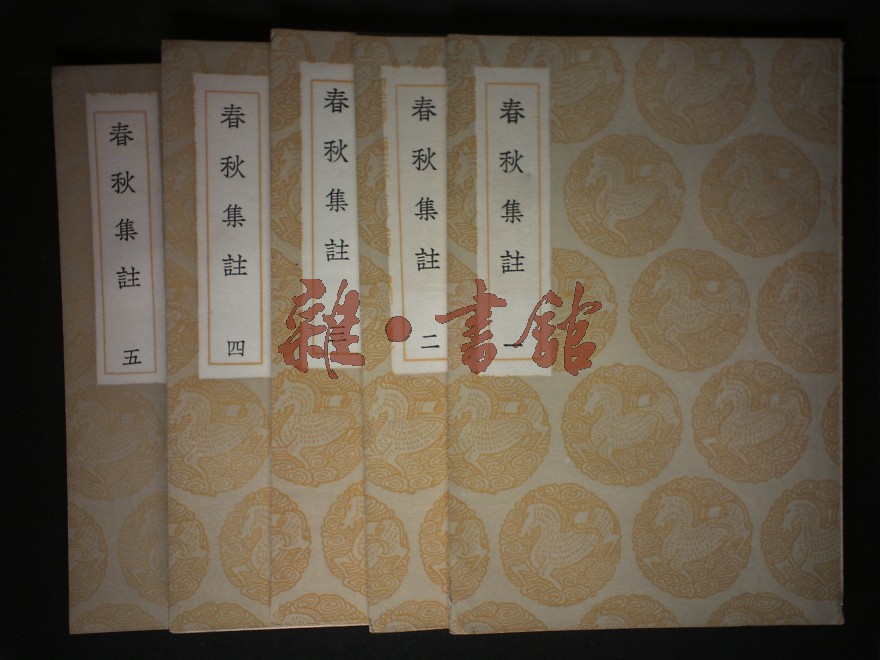 春秋集註 一
春秋集註 二
春秋集註 三
春秋集註 四
春秋集註 五
雜·書館